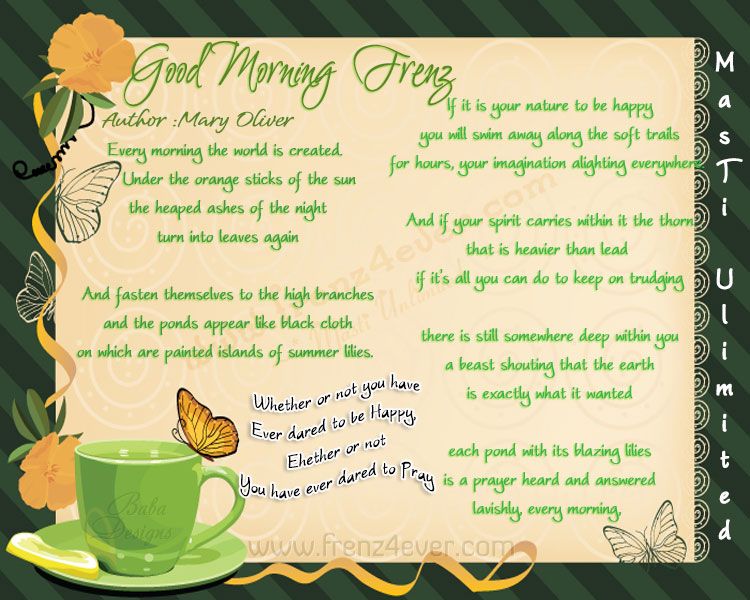 Good Morning Frenz
Author :Mary Oliver
Every morning the world is created.
Under the orange sticks of the sun
the heaped ashes of the night
turn into leaves again
And fasten themselves to the high branches
and the ponds appear like black cloth
on which are painted islands of summer lilies.
If it is your nature to be happy
you will swim away along the soft trails
for hours, your imagination alighting everywhere
And if your spirit carries within it the thorn
that is heavier than lead
if it's all you can do to keep on trudging
there is still somewhere deep within you
a beast shouting that the earth
is exactly what it wanted
each pond with its blazing lilies
is a prayer heard and answered
lavishly, every morning,
Whether or not you have
Ever dared to be Happy,
Ehether or not
You have ever dared to Pray
MasTi Ulimited
Baba
Designs
www.frenz4ever.com